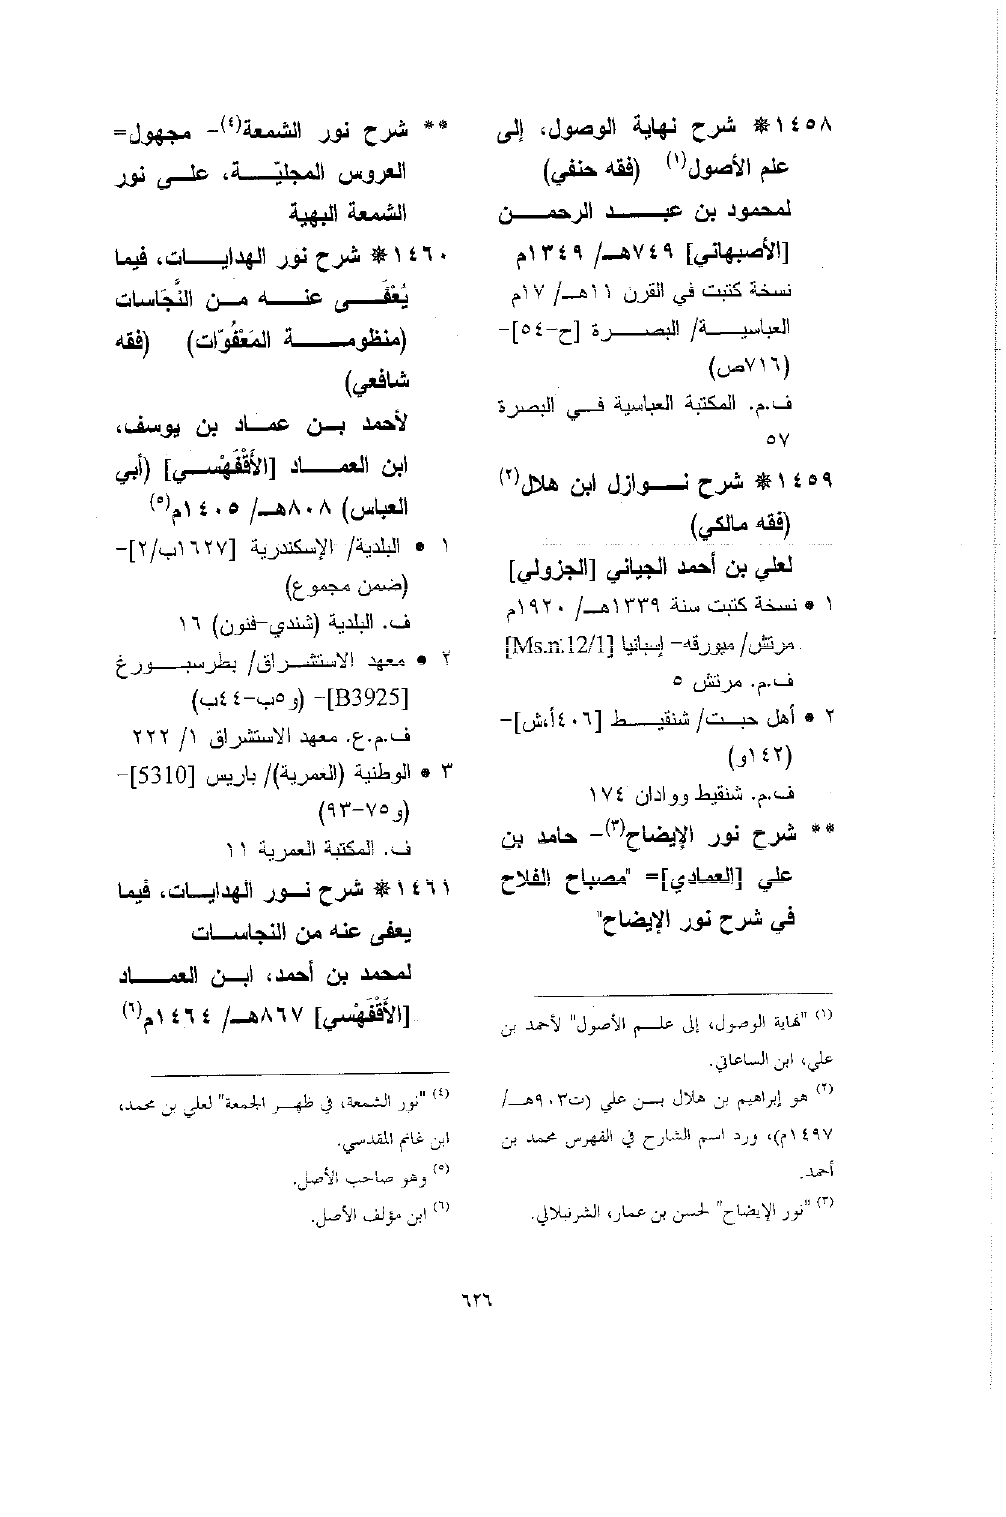 ١٤٥٨* شرح نهاية الوصول، إلى
علم الأصول(١) (فقه حنفي)
لمحمود بن عبد الرحمن
[الأصبهاني] ٧٤٩هـ/ ١٣٤٩م
نسخة كتبت في القرن ١١هـ/ ١٧م
العباسية/ البصرة [ح-٥٤]-
(٧١٦ص)
ف.م. المكتبة العباسية في البصرة
٥٧
١٤٥٩* شرح نوازل ابن هلال(٢)
(فقه مالكي)
لعلي بن أحمد الجياني [الجزولي]
١ • نسخة كتبت سنة ١٣٣٩هـ/ ١٩٢٠م
مرتش/ ميورقه- إسبانيا [Ms.n:12/1]
ف.م. مرتش ٥
٢ • أهل حبت/ شنقيط [٤٠٦أ،ش]-
(١٤٢و)
ف.م. شنقيط ووادان ١٧٤
** شرح نور الإيضاح(٣)- حامد بن
علي [العمادي]= "مصباح الفلاح
في شرح نور الإيضاح"
(١) "نهاية الوصول، إلى علم الأصول" لأحمد بن
علي، ابن الساعاتي.
(٢) هو إبراهيم بن هلال بن علي (ت٩٠٣هـ/
١٤٩٧م)، ورد اسم الشارح في الفهرس محمد بن
أحمد.
(٣) "نور الإيضاح" لحسن بن عمار، الشرنبلالي.
** شرح نور الشمعة(٤)- مجهول=
العروس المجليّة، على نور
الشمعة البهية
١٤٦٠* شرح نور الهدايات، فيما
يُعْفَى عنه من النَّجَاسات
(منظومة المَعْفُوّات) (فقه
شافعي)
لأحمد بن عماد بن يوسف،
ابن العماد [الأَقْفَهْسي] (أبي
العباس) ٨٠٨هـ/ ١٤٠٥م(٥)
١ • البلدية/ الإسكندرية [١٦٢٧ب/٢]-
(ضمن مجموع)
ف. البلدية (شندي-فنون) ١٦
٢ • معهد الاستشراق/ بطرسبورغ
[B3925]- (و٥ب-٤٤ب)
ف.م.ع. معهد الاستشراق ١/ ٢٢٢
٣ • الوطنية (العمرية)/ باريس [5310]-
(و٧٥-٩٣)
ف. المكتبة العمرية ١١
١٤٦١* شرح نور الهدايات، فيما
يعفى عنه من النجاسات
لمحمد بن أحمد، ابن العماد
[الأَقْفَهْسي] ٨٦٧هـ/ ١٤٦٤م(٦)
(٤) "نور الشمعة، في ظهر الجمعة" لعلي بن محمد،
ابن غانم المقدسي.
(٥) وهو صاحب الأصل.
(٦) ابن مؤلف الأصل.
٦٢٦